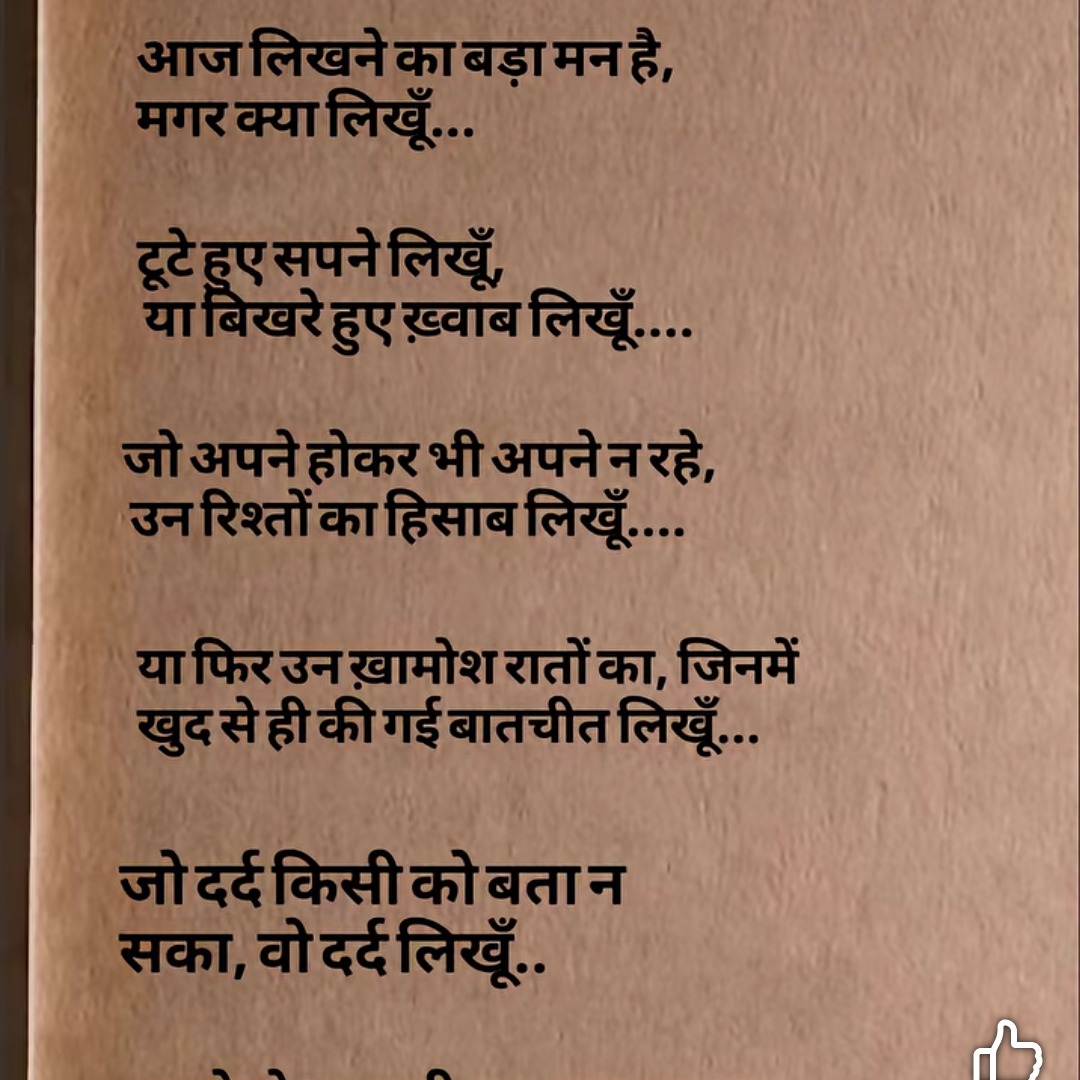 आज लिखने का बड़ा मन है,
मगर क्या लिखूँ...
टूटे हुए सपने लिखूँ,
या बिखरे हुए ख़्वाब लिखूँ....
जो अपने होकर भी अपने न रहे,
उन रिश्तों का हिसाब लिखूँ....
या फिर उन ख़ामोश रातों का, जिनमें
खुद से ही की गई बातचीत लिखूँ...
जो दर्द किसी को बता न
सका, वो दर्द लिखूँ..